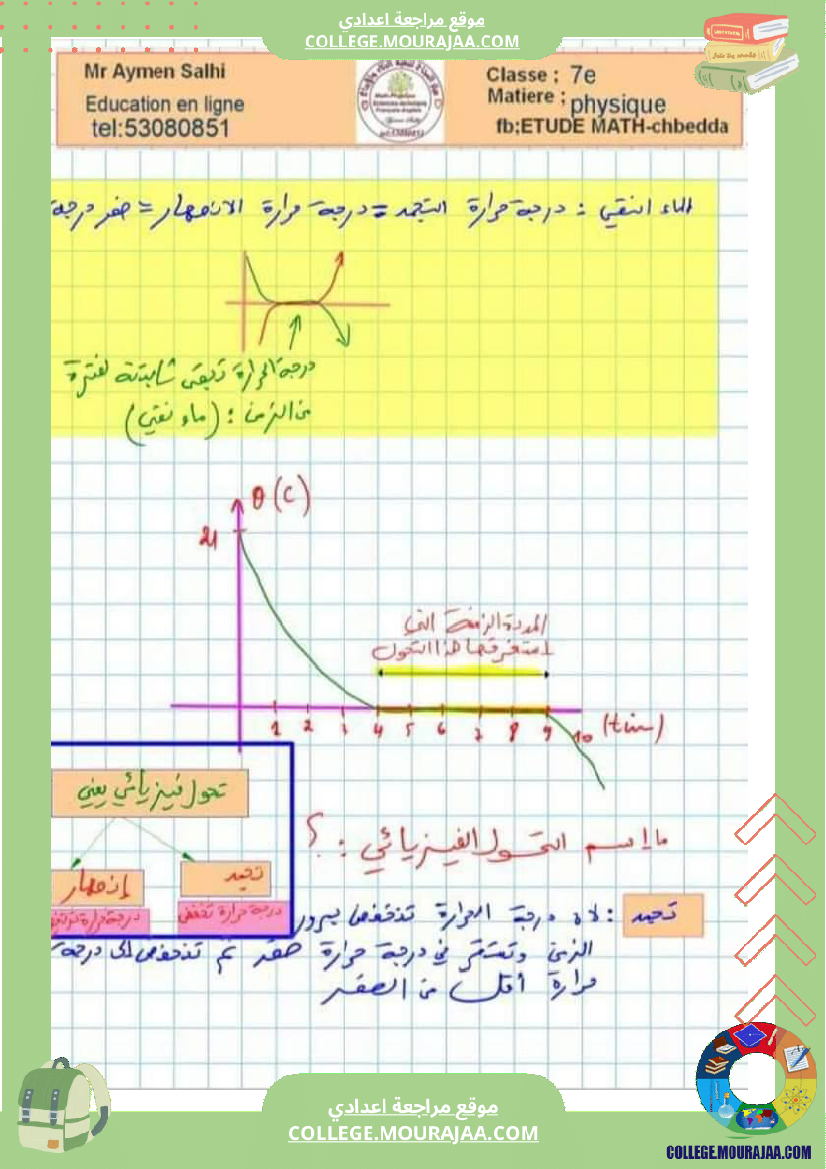 موقع مراجعة اعدادي
COLLEGE.MOURAJAA.COM
Mr Aymen Salhi
Education en ligne
tel:53080851
Classe : 7e
Matiere : physique
fb;ETUDE MATH-chbedda
الماء النقي : درجة حرارة التجمد = درجة حرارة الانصهار = صفر درجة
درجة الحرارة تبقى ثابتة لفترة
من الزمن : (ماء نقي)
θ (C)
21
المدة الزمنية التي
استغرقها هذا التحول
1 2 3 4 5 6 7 8 9 10
تحول فيزيائي يعني
تجمد
إنصهار
درجة حرارة تنخفض
درجة حرارة
ما إسم التحول الفيزيائي : ؟
تجمد : لأن درجة الحرارة تنخفض بمرور
الزمن وتستقر في درجة حرارة صفر ثم تنخفض الى درجة
حرارة أقل من الصفر
موقع مراجعة اعدادي
COLLEGE.MOURAJAA.COM
COLLEGE.MOURAJAA.COM